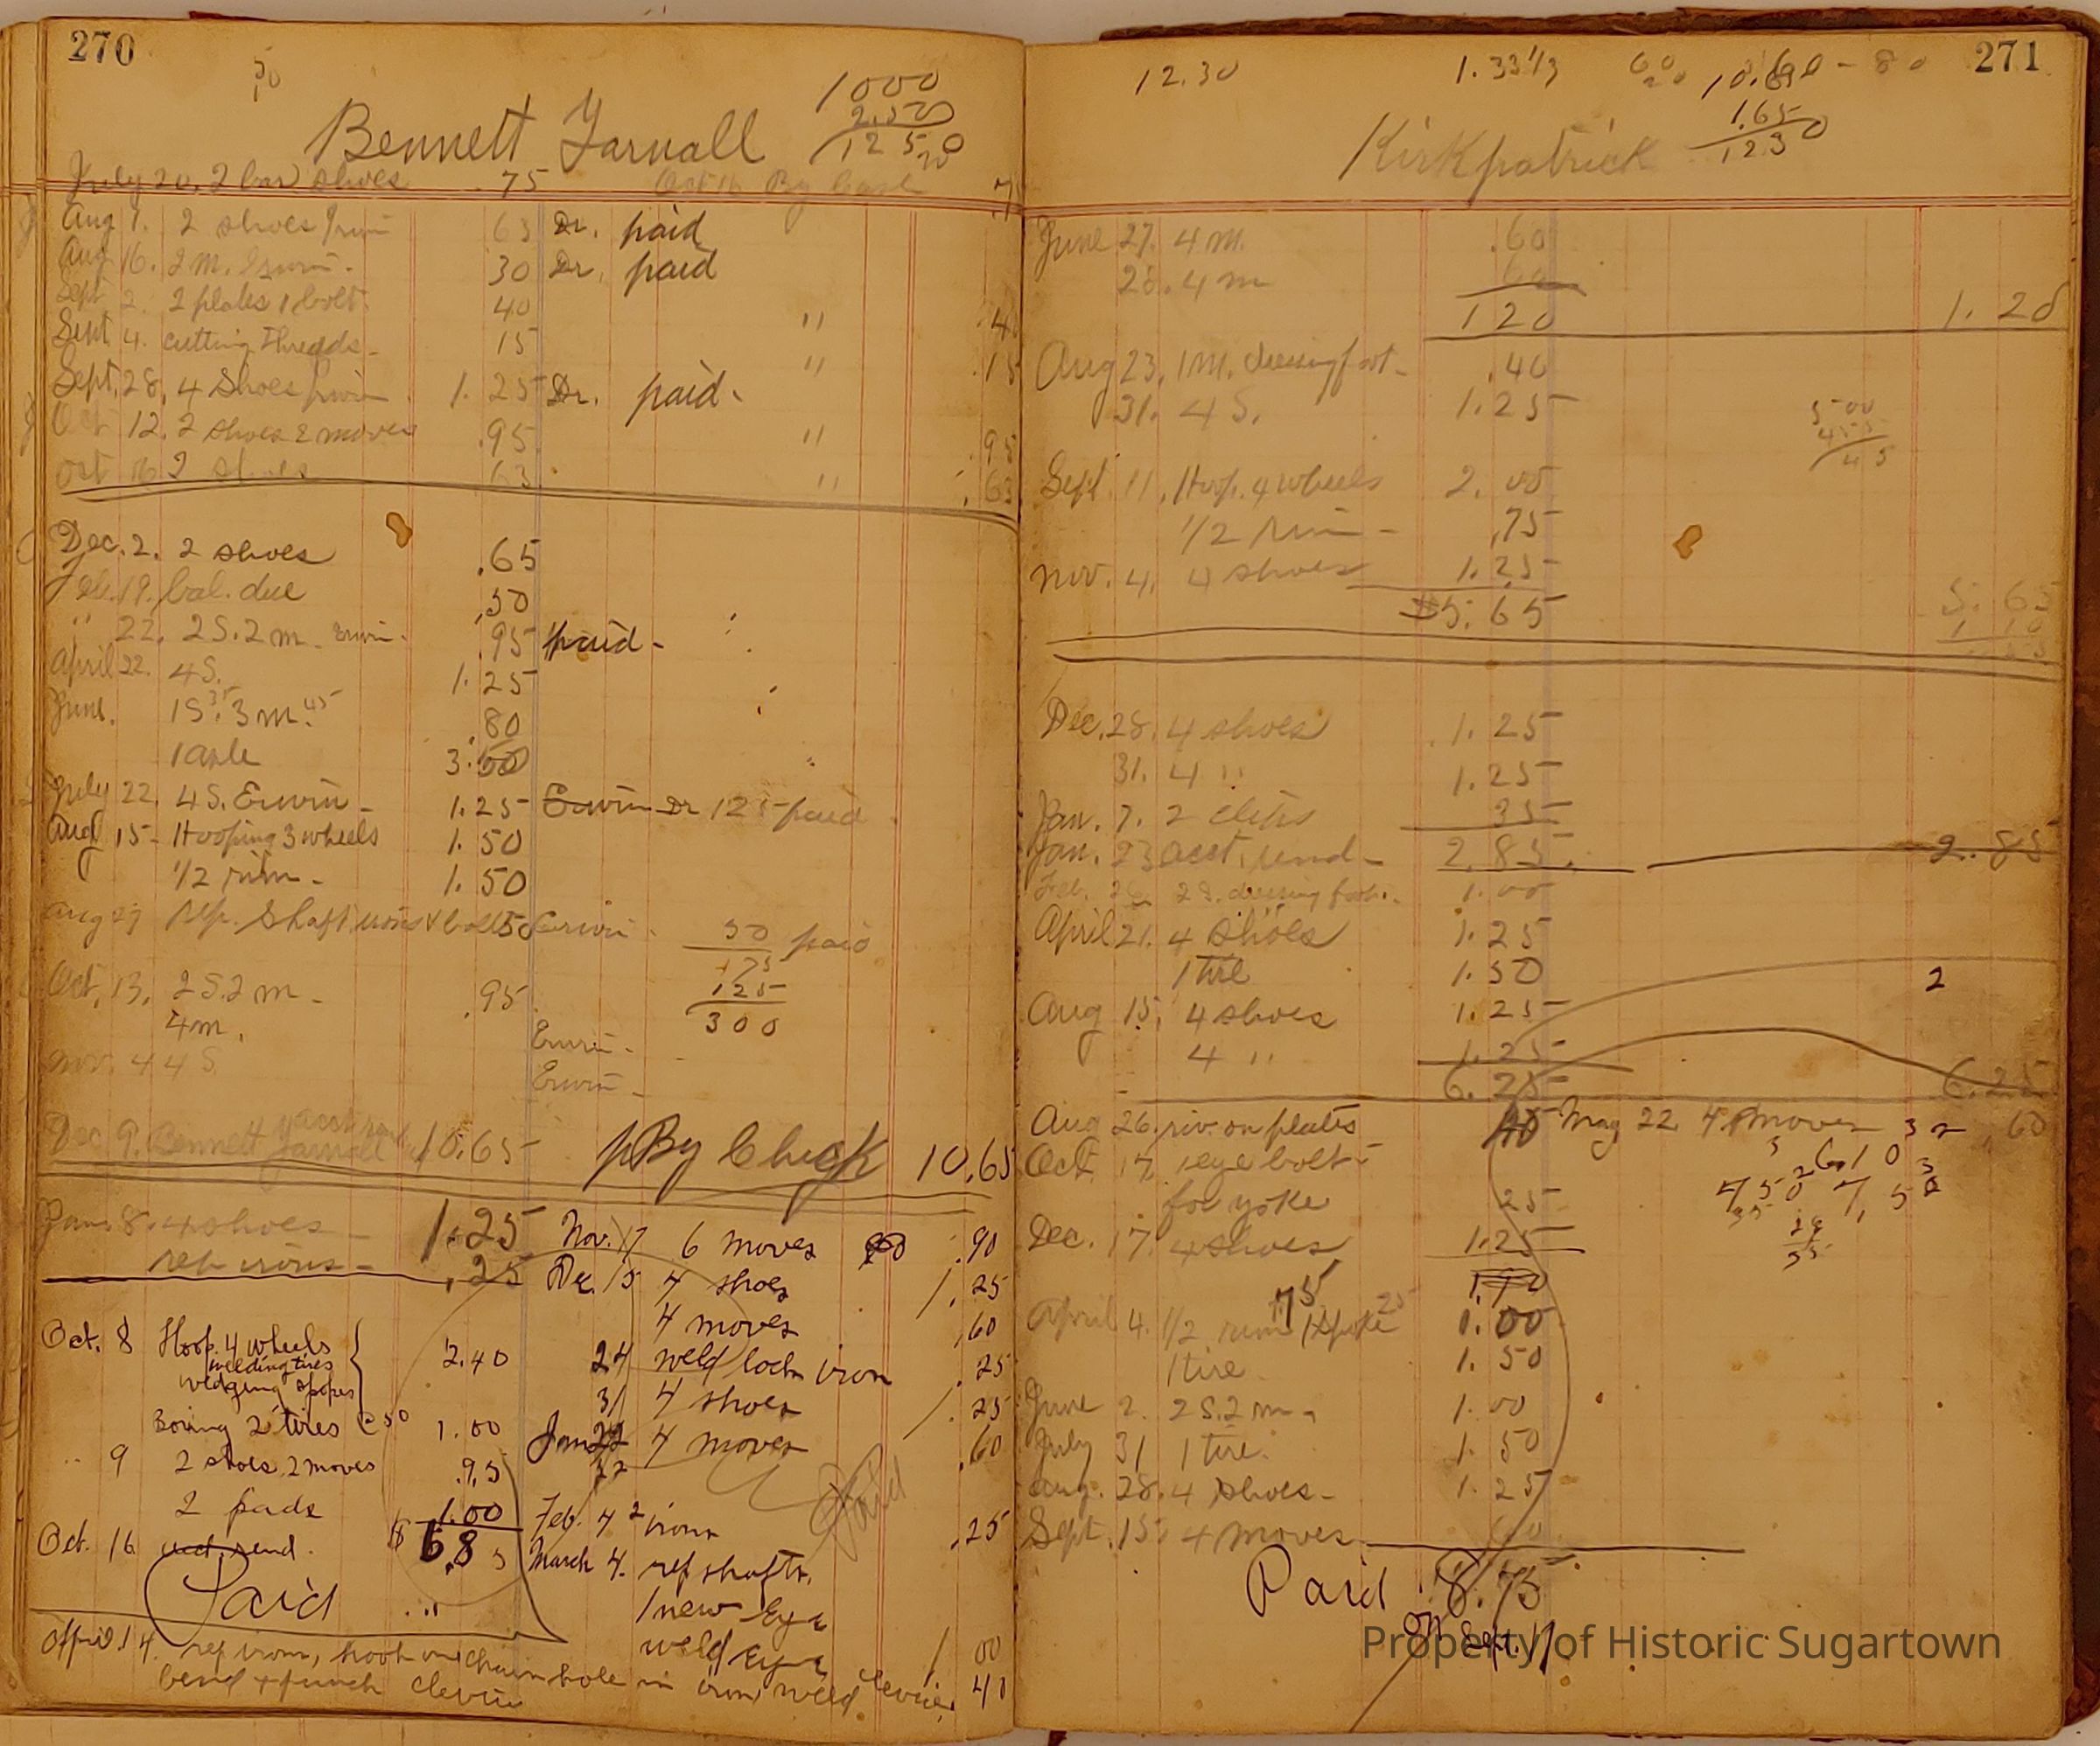 270
50
10
1000
2.50
1250
Bennett Yarnall
July 20. 2 bar shoes .75 Oct 16 By Cash .7
Aug 7. 2 shoes 63 Dr. paid
Aug 16. 2 m. Erwin - 30 Dr. paid
Sept 2. 2 plates 1 bolt. 40 " 4
Sept 4. cutting threads - 15 " .15
Sept. 28, 4 Shoes Erwin 1.25 Dr. paid -
Oct 12. 2 shoes 2 moves .95 " .95
Oct 16 2 shoes 63. " .63
Dec. 2. 2 shoes .65
Feb. 19. bal. due .50
" 22. 2S. 2m - Erwin - .95 paid -
April 22. 4S. 1.25
June. 1S. 35 3m. 45 .80
1 axle 3.50
July 22. 4S. Erwin - 1.25 Erwin Dr 125 paid
Aug 15 - Hooping 3 wheels 1.50
1/2 rim - 1.50
Aug 27 rep. Shaft irons & bolt 50 Erwin - 50 paid
175
125
300
Oct. 13. 2S. 2m - .95
4m. Erwin -
Nov. 4 4S Erwin -
Dec 9. Bennett Yarnall 10.65 By Check 10.65
Jan. 8. 4 shoes - 1.25
rep irons - .25
Oct. 8 Hoop. 4 wheels
welding tires
wedging spokes 2.40
Boring 2 tires @ 50 1.00
" 9 2 shoes, 2 moves .95
2 pads 1.00
Oct. 16 acct. rend. $6.85
Paid
Nov. 17 6 moves 90 .90
Dec. 15 4 shoes 1.25
4 moves .60
24 weld lock iron .25
31 4 shoes 1.25
Jan 22 4 moves .60
Paid
Feb. 4 2 irons .25
March 4. rep shafts,
1 new Eye
weld Eye 1 00
April 14. rep iron, hook on chain hole in iron, weld clevis, 40
bend & punch clevis
271
12.30
1.33 1/3
60
20
10.60 - 80
1.65
12.30
Kirkpatrick
June 27. 4 m. .60
28. 4 m 60
120 1.20
Aug 23, 1 m. dressing foot - .40
31. 4 S. 1.25
500
455
45
Sept. 11, Hoop. 4 wheels 2.00
1/2 rim - .75
Nov. 4. 4 shoes 1.25
$5.65 5.65
Dec. 28. 4 shoes 1.25
31. 4 " 1.25
Jan. 7. 2 clips 35
Jan. 23 acct. rend - 2.85. 2.85
Feb. 26 2S. dressing foot. - 1.00
April 21. 4 shoes 1.25
1 tire 1.50 2
Aug 15. 4 shoes 1.25
4 " 1.25
6.25 6.25
Aug 26. riv. on plates 40 May 22 4 moves .60
Oct. 17. 1 eye bolt
for yoke 25
Dec. 17. 4 shoes 1.25
1.90
6.10
7.50
April 4. 1/2 rim 75 1 spoke 25 1.00
1 tire 1.50
June 2. 2S. 2m - 1.00
July 31 1 tire. 1.50
Aug. 28. 4 shoes - 1.25
Sept. 15. 4 moves 60
Paid 8.75
on Sept. 11
Property of Historic Sugartown